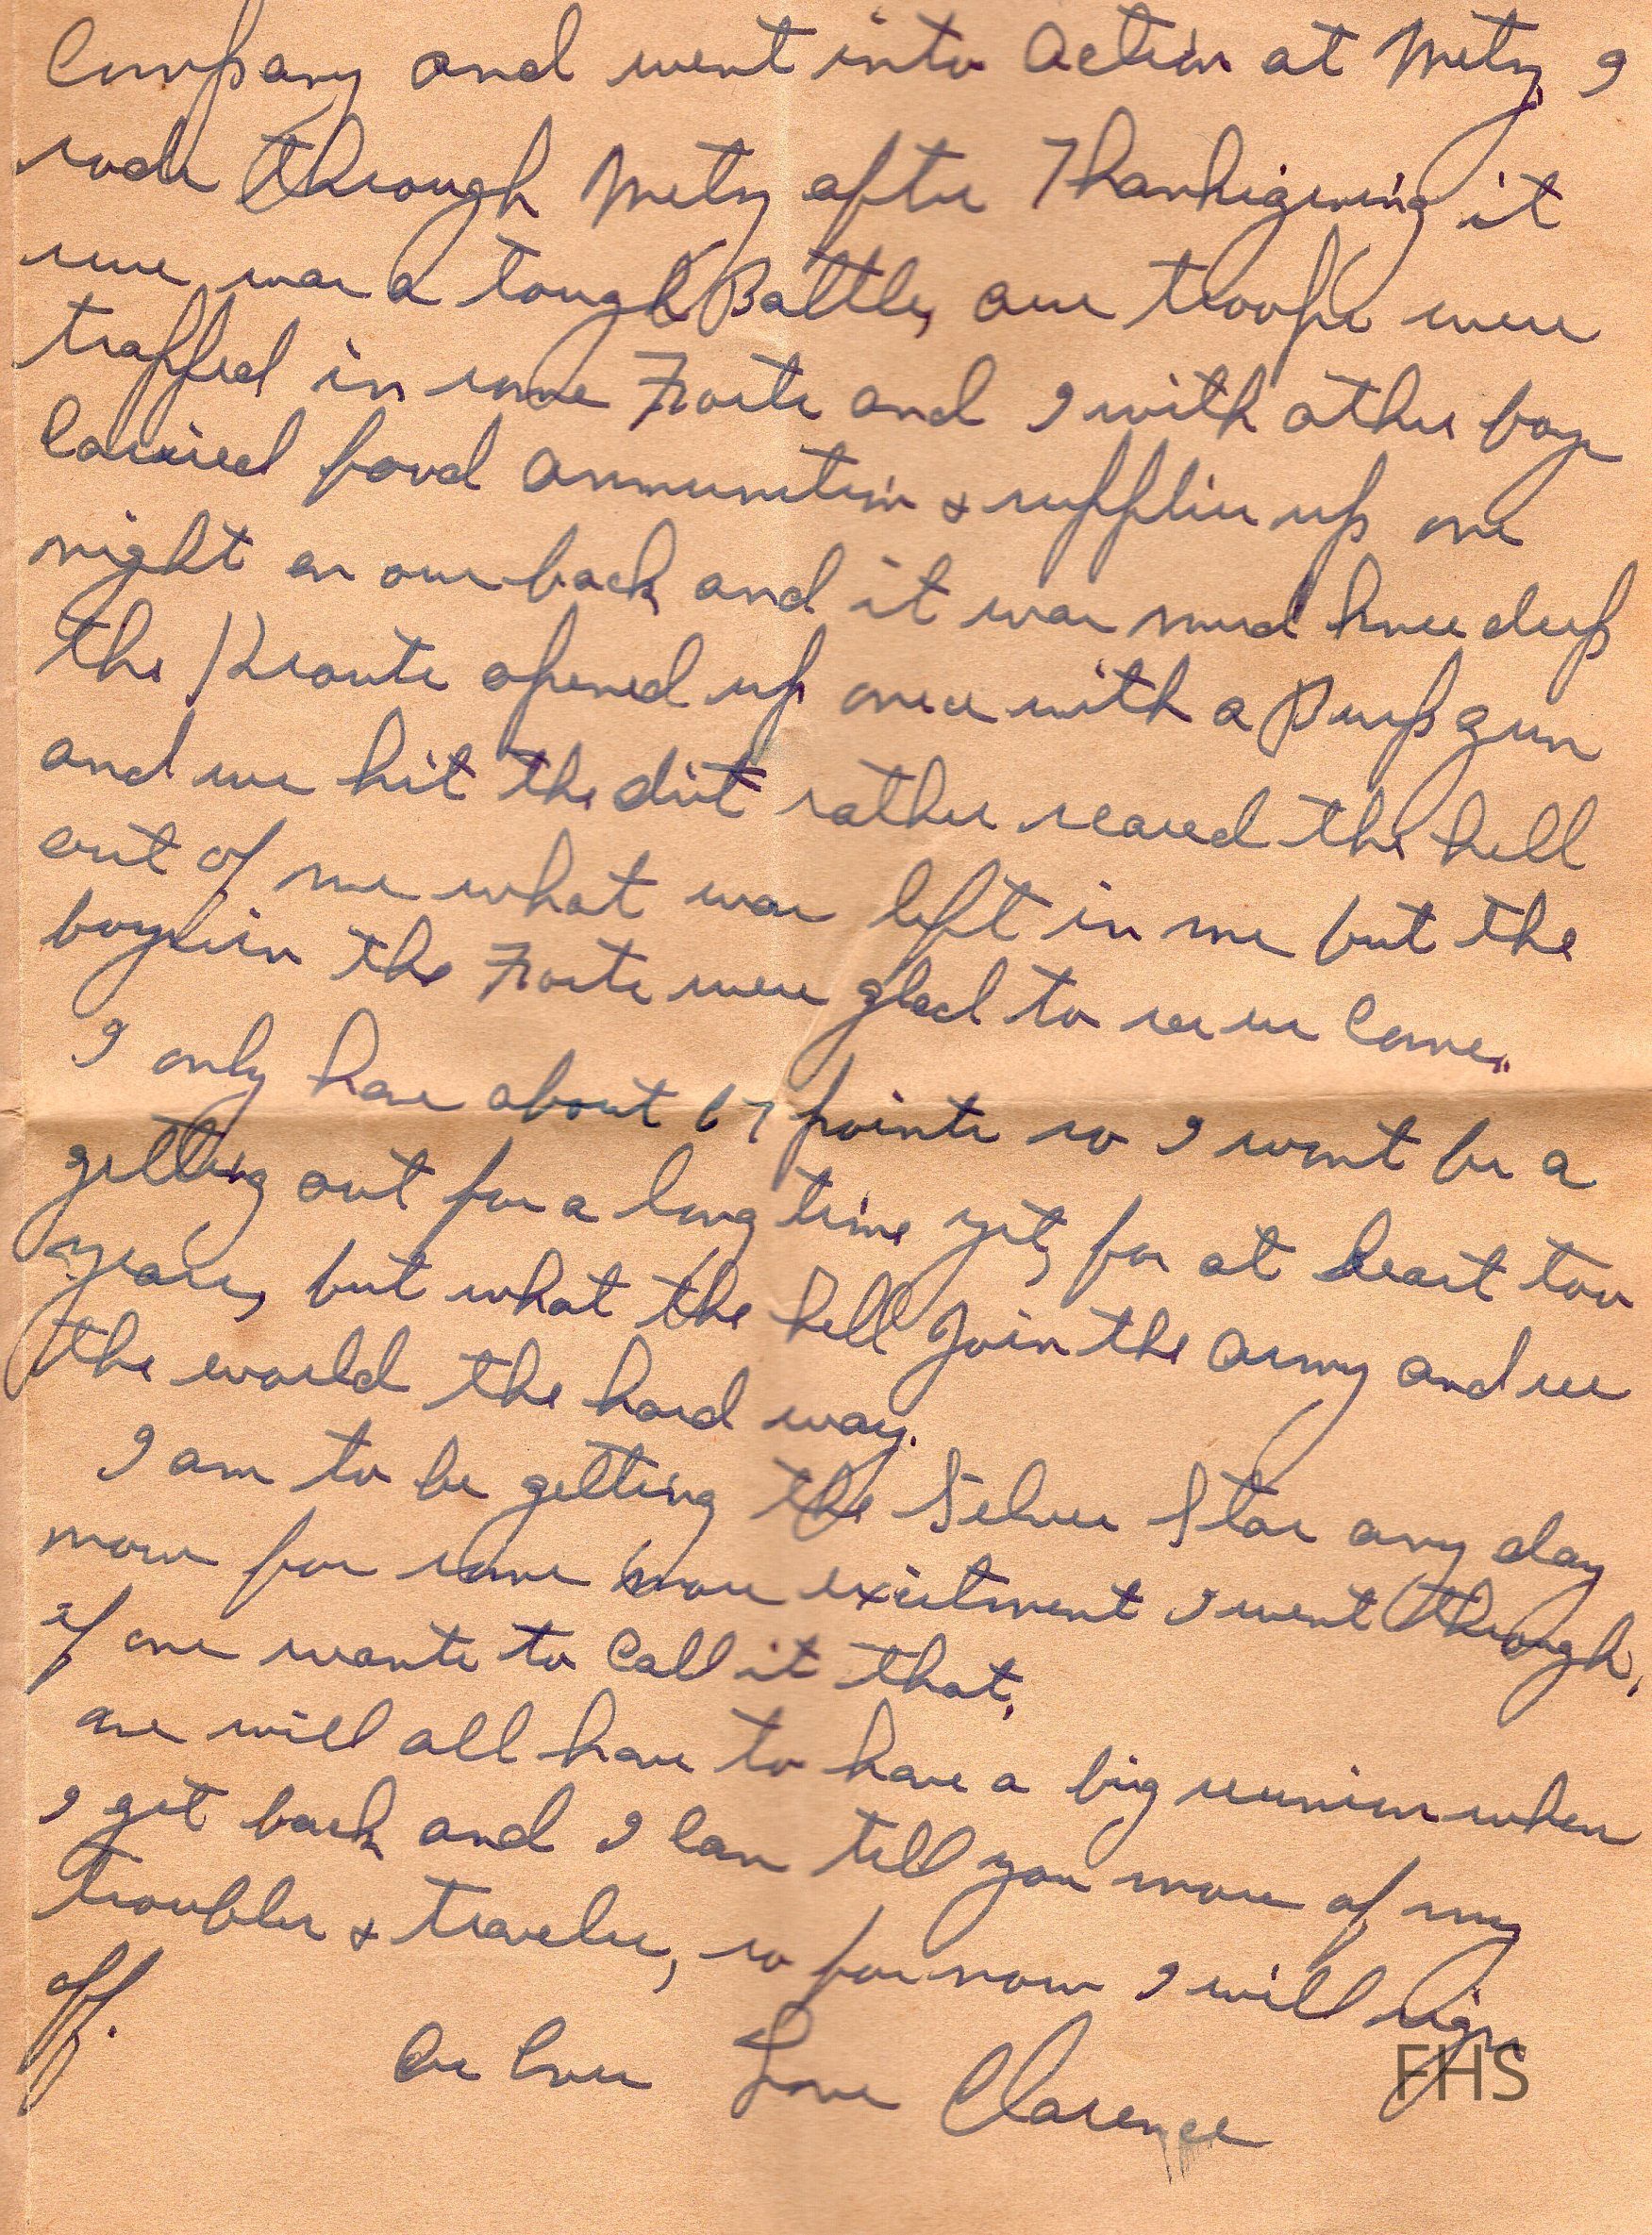 Company and went into Action at Metz, I
rode through Metz after Thanksgiving it
sure was a tough Battle, our troops were
trapped in some Forts and I with other boys
Carried food Ammunition & supplies up one
night on our back and it was mud knee deep
the Krauts opened up once with a Burp gun
and we hit the dirt rather scared the hell
out of me what was left in me but the
boys in the Forts were glad to see us Come.
I only have about 67 points so I wont be a
getting out for a long time yet, for at least too
years, but what the hell Join the Army and see
the world the hard way.
I am to be getting the Silver Star any day
now for some more excitment I went through,
if one wants to Call it that.
we will all have to have a big reunion when
I get back and I Can tell you more of my
troubles & travels, so for now I will sign
off.
As Ever Love Clarence
FHS